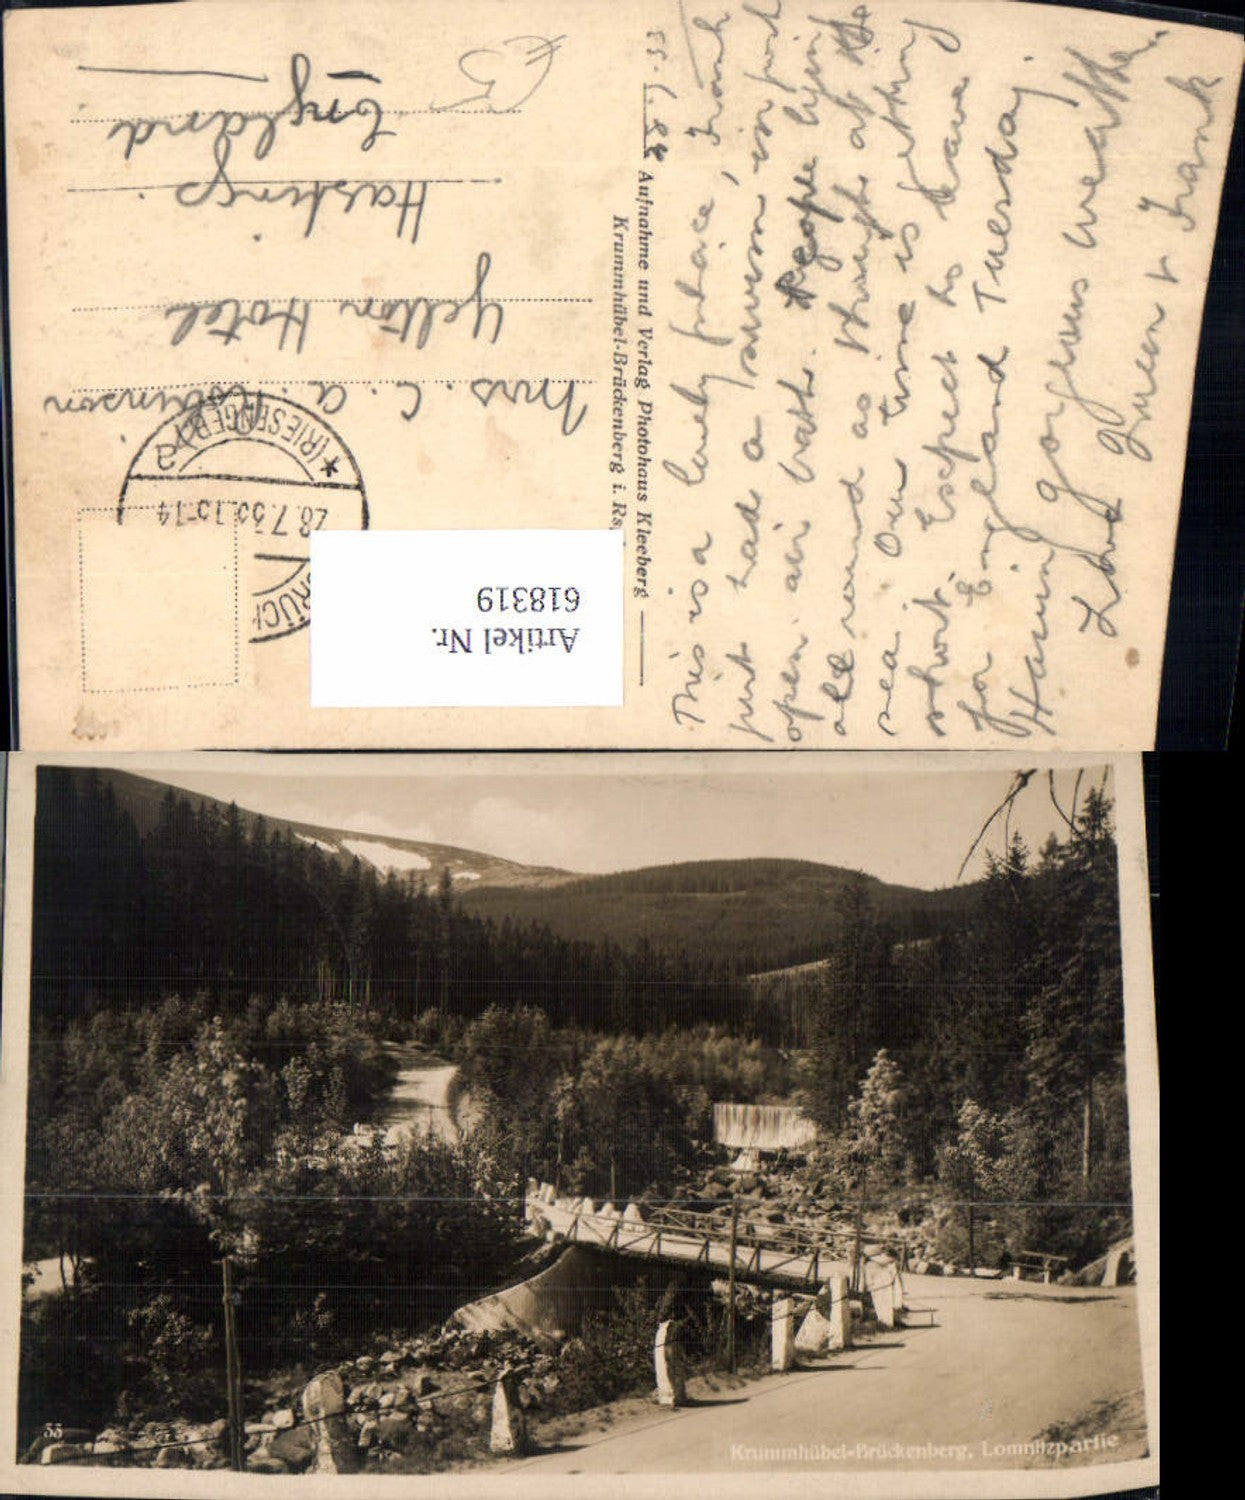 This is a lovely place, Frank
just had a swim in just
open air bath. People lying
all round as though at the
sea. Our time is getting
short. Expect to leave
for England Tuesday.
Having gorgeous weather.
Love
Queen & Frank
33.
Aufnahme und Verlag Photohaus Kleeberg
Krummhübel-Brückenberg i. Rs
Mrs. C. A. Robinson
Yelton Hotel
Hastings
England
€5
(RIESENGEB)
a
28.7.36.
BRÜCK
Artikel Nr.
618319
33
Krummhübel-Brückenberg, Lomnitzpartie